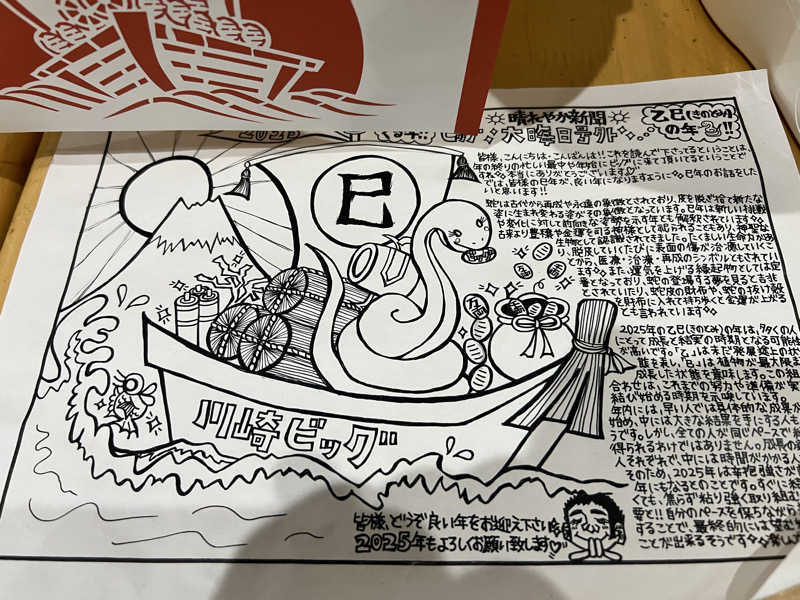 晴れやか新聞
大晦日号外
乙巳(きのとみ)
の年
!!
2025
皆様、こんにちは・こんばんは!!これを読んで下さってるということは、
年の終りの忙しい最中や年始にビッグに来て頂いてるということで
すね 本当にありがとうございます 巳年のお話をした
では、皆様の巳年が、良い年になりますように
いと思います!!
蛇は古代から再がや永遠の象徴とされており、皮を脱ぎ捨て新たな
姿に生まれ変わる姿がその象徴となっています。巳年は新しい挑戦
や変化に対して前向きな姿勢を示す年とも解釈されています
古来より豊穣や金運を司る神様として祀られることもあり、神聖な
生物として認識されてきました。たくましい生命力があ
り、脱皮していくたびに表面の傷が治癒していくこ
とから、医療・治療・再成のシンボルともされてい
ます また、運気を上げる縁起物としては定
番となっており、蛇の登場する夢を見ると吉兆
とされていたり、蛇皮の財布や、蛇のすがり殻
を財布に入れて持ち歩くと金運が上がる
とも言われています
2025年の乙巳(きのとみ)の年は、多くの人
にとって成長と結実の時期となる可能性
が高いです。「乙」は未だ発展途上の状
態を表し、「巳」は植物が最大限ま
成長した状態を意味します。この組
合わせは、これまでの努力や準備が実
結び始める時期を示唆しています。
年内には、早い人では具体的な成果が
始め、中には大きな結果を手にする人も
うです。しかし、全ての人が同じペースで
得られるわけではありません。成長の
人それぞれで、中には時間がかかる人
そのため、2025年は辛抱強さが
年にもなるとのことです。すぐに結
くても、焦らず粘り強く取り組む
要と!!自分のペースを保ちながら
することで、最終的には望む
ことが出来るそうです
巳
川崎ビッグ
皆様、どうぞ良い年をお迎え下さい
2025年もよろしくお願い致します